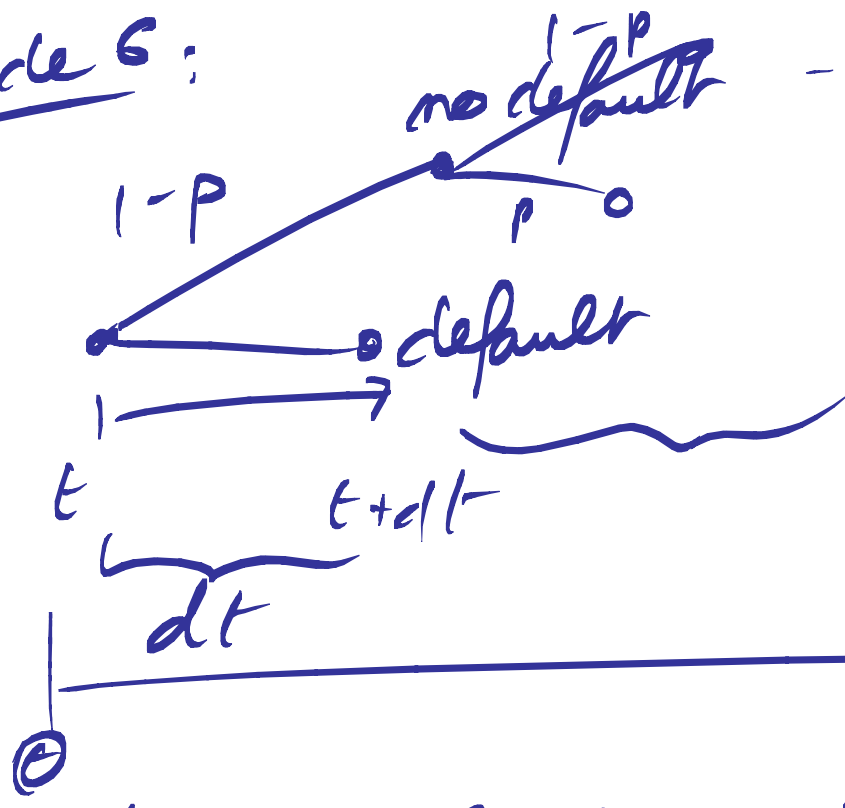 de 6 :
1-p
no default -
1-p
p
default
t
t+dt
dt
t